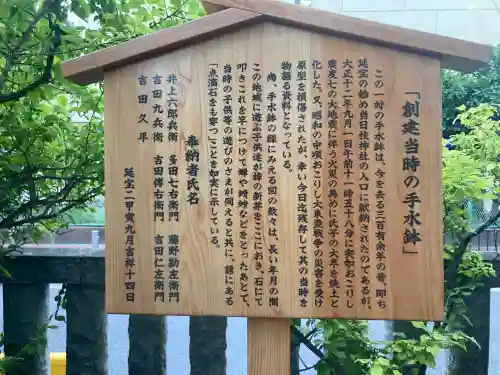 「創建当時の手水鉢」
この一対の手水鉢は、今を去る三百有余年の昔、即ち
延宝の始め当日枝神社の入口に献納されたのであるが、
大正十二年九月一日午前十一時五十八分に突如おこりし
震度七の大地震に伴う火災の為めに氏子の大半を焼土と
化した。又、昭和の中頃おこりし大東亜戦争の災害を受け
原型を損傷されたが、幸い今日迄残存して其の当時を
物語る資料となっている。
尚、手水鉢の縁にみえる凹の数々は、長い年月の間
この地域に遊ぶ子供達が椿の新芽をここにおき、石にて
叩きこれを竿につけて蝉や蜻蛉などをとったあとで、
当時の子供等の遊びのさまが伺えると共に、諺にある
「点滴石をも穿つ」ことを如実に示している。
奉納者氏名
井上六郎兵衛 多田七右衛門 藤野勘左衛門
吉田九兵衛 吉田傳右衛門 吉田仁左衛門
吉田久平
延宝二甲寅九月吉祥十四日